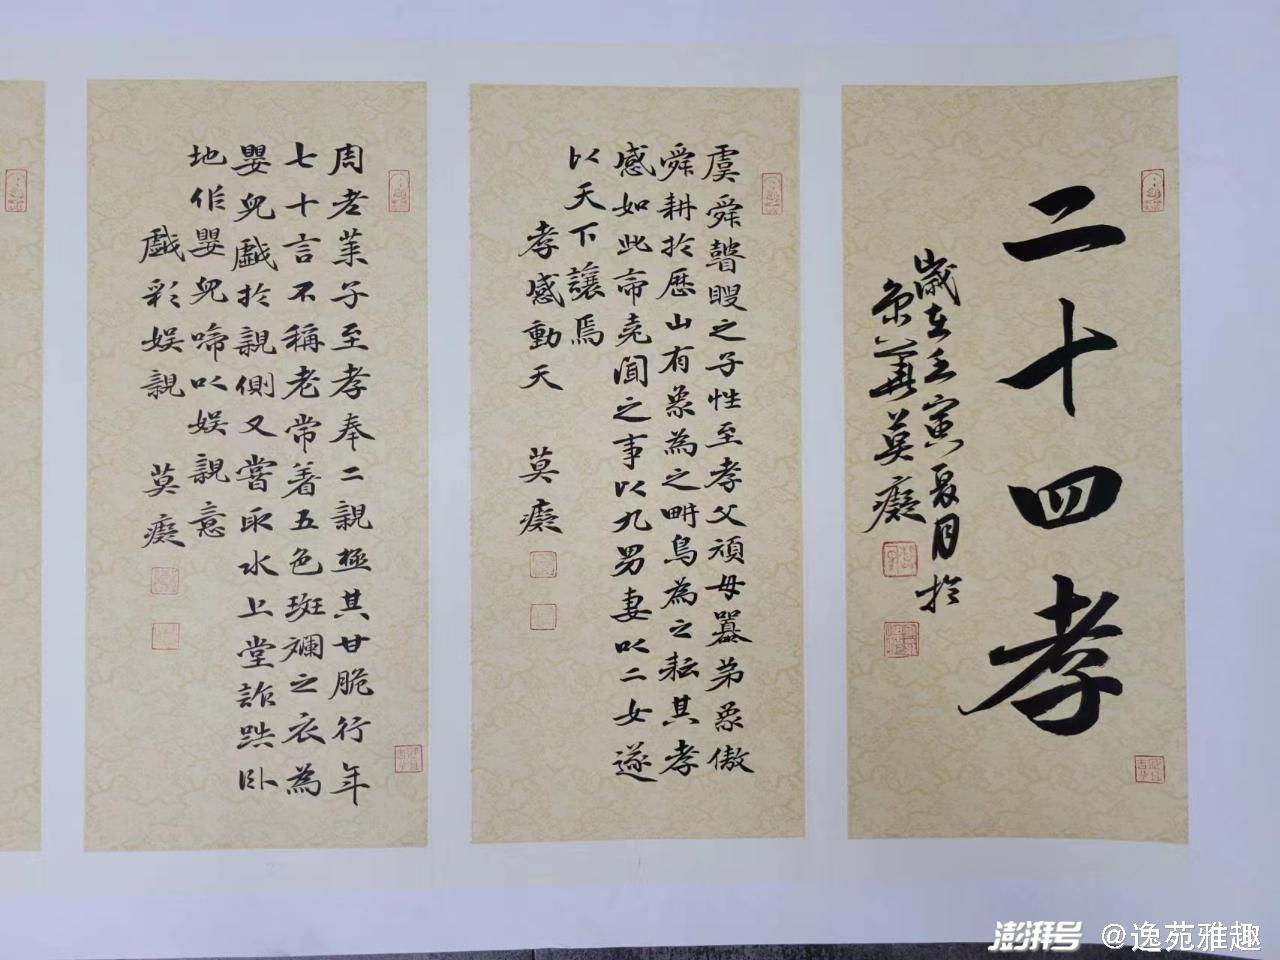 二十四孝
歲在壬寅夏月於
京華莫癡
虞舜瞽瞍之子性至孝父頑母嚚弟象傲
舜耕於歷山有象為之耕鳥為之耘其孝
感如此帝堯聞之事以九男妻以二女遂
以天下讓焉
孝感動天 莫癡
周老萊子至孝奉二親極其甘脆行年
七十言不稱老常着五色斑斕之衣為
嬰兒戲於親側又嘗取水上堂詐跌臥
地作嬰兒啼以娛親意
戲彩娛親 莫癡
澎湃号 @逸苑雅趣